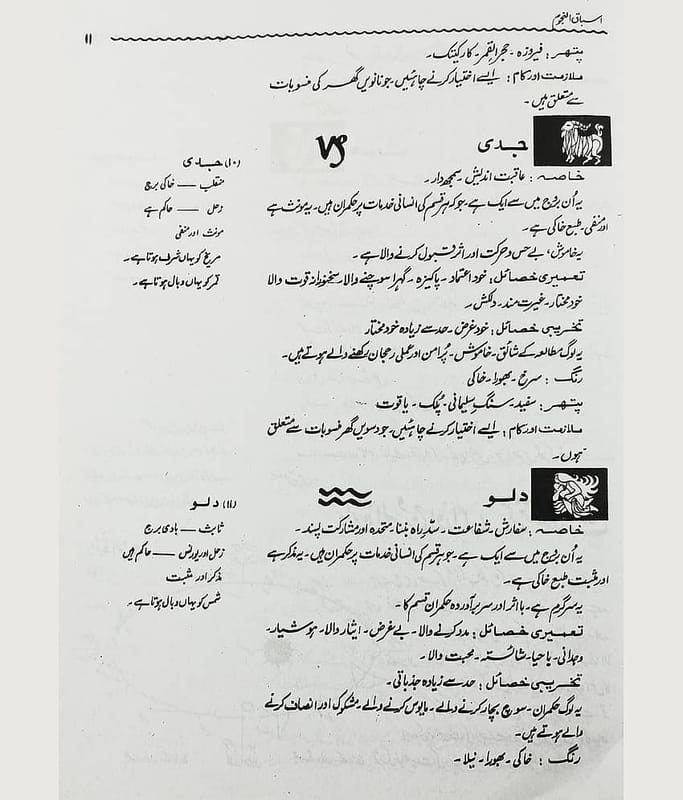 اسباق النجوم
۱۱
پتھر : فیروزہ ۔ حجر القمر ۔ کارکیتک ۔
ملازمت اور کام : ایسے اختیار کرنے چاہئیں ۔ جو نانویں گھر کی منسوبات
سے متعلق ہیں ۔
جدی
خاصہ : عاقبت اندیش ۔ سمجھ دار ۔
یہ اُن بُرج میں سے ایک ہے ۔ جو کہ ہر قسم کی انسانی خدمات پر حکمران ہیں ۔ یہ مونث ہے
اور منفی ۔ طبع خاکی ہے ۔
یہ خاموش ، بے حس و حرکت اور اثر قبول کرنے والا ہے ۔
تعمیری خصائل : خود اعتماد ۔ پاکیزہ ۔ گہرا سوچنے والا ۔ قوت والا
خود مختار ۔ غیرت مند ۔ دلکش ۔
تخریبی خصائل : خود غرض ۔ حد سے زیادہ خود مختار
یہ لوگ مطالعہ کے شائق ۔ خاموش ۔ پُر امن اور عملی رجحان رکھنے والے ہوتے ہیں ۔
رنگ : سرخ ۔ بھورا ۔ خاکی
پتھر : سفید ۔ سنگِ سلیمانی ۔ یاقوت
ملازمت اور کام : ایسے اختیار کرنے چاہئیں ۔ جو دسویں گھر منسوبات سے متعلق
ہوں ۔
(۱۰) جدی
منقلب — خاکی برج
زحل — حاکم ہے
مونث اور منفی
مریخ کو یہاں شرف ہوتا ہے ۔
قمر کو یہاں وبال ہوتا ہے ۔
دلو
خاصہ : سفارش ۔ شفاعت ۔ سدِّ راہ بننا ۔ متحدہ اور مشارکت پسند ۔
یہ اُن بُرج میں سے ایک ہے ۔ جو ہر قسم کی انسانی خدمات پر حکمران ہیں ۔ یہ مذکر ہے
اور مثبت طبع خاکی ہے ۔
یہ سرگرم ہے ۔ با اثر اور سر برآوردہ حکمران قسم کا ۔
تعمیری خصائل : مدد کرنے والا ۔ بے غرض ۔ ایثار والا ۔ ہوشیار ۔
وجدانی ۔ با حیا ۔ شائستہ ۔ محبت والا ۔
تخریبی خصائل : حد سے زیادہ جذباتی ۔
یہ لوگ حکمران ۔ سوچ بچار کرنے والے ۔ مایوس کرنے والے ۔ مشکوک اور انصاف کرنے
والے ہوتے ہیں ۔
رنگ : خاکی ۔ بھورا ۔ نیلا ۔
(۱۱) دلو
ثابت — بادی برج
زحل اور یورنس — حاکم ہیں
مذکر اور مثبت
شمس کو یہاں وبال ہوتا ہے ۔